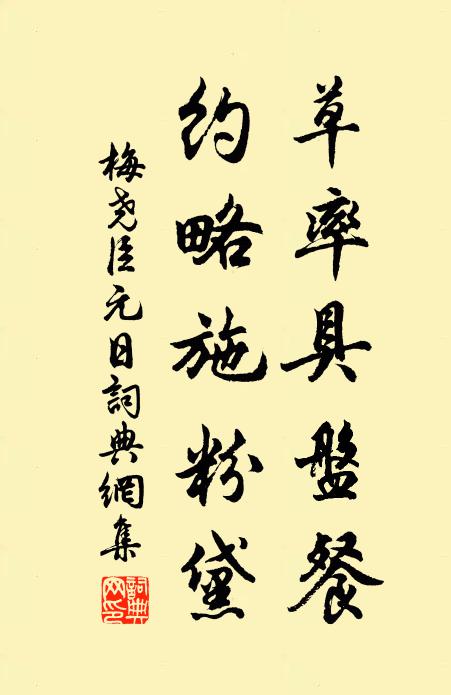 草率具盤餐
約略施粉黛
梅堯臣元日詞典網集
詞典网印